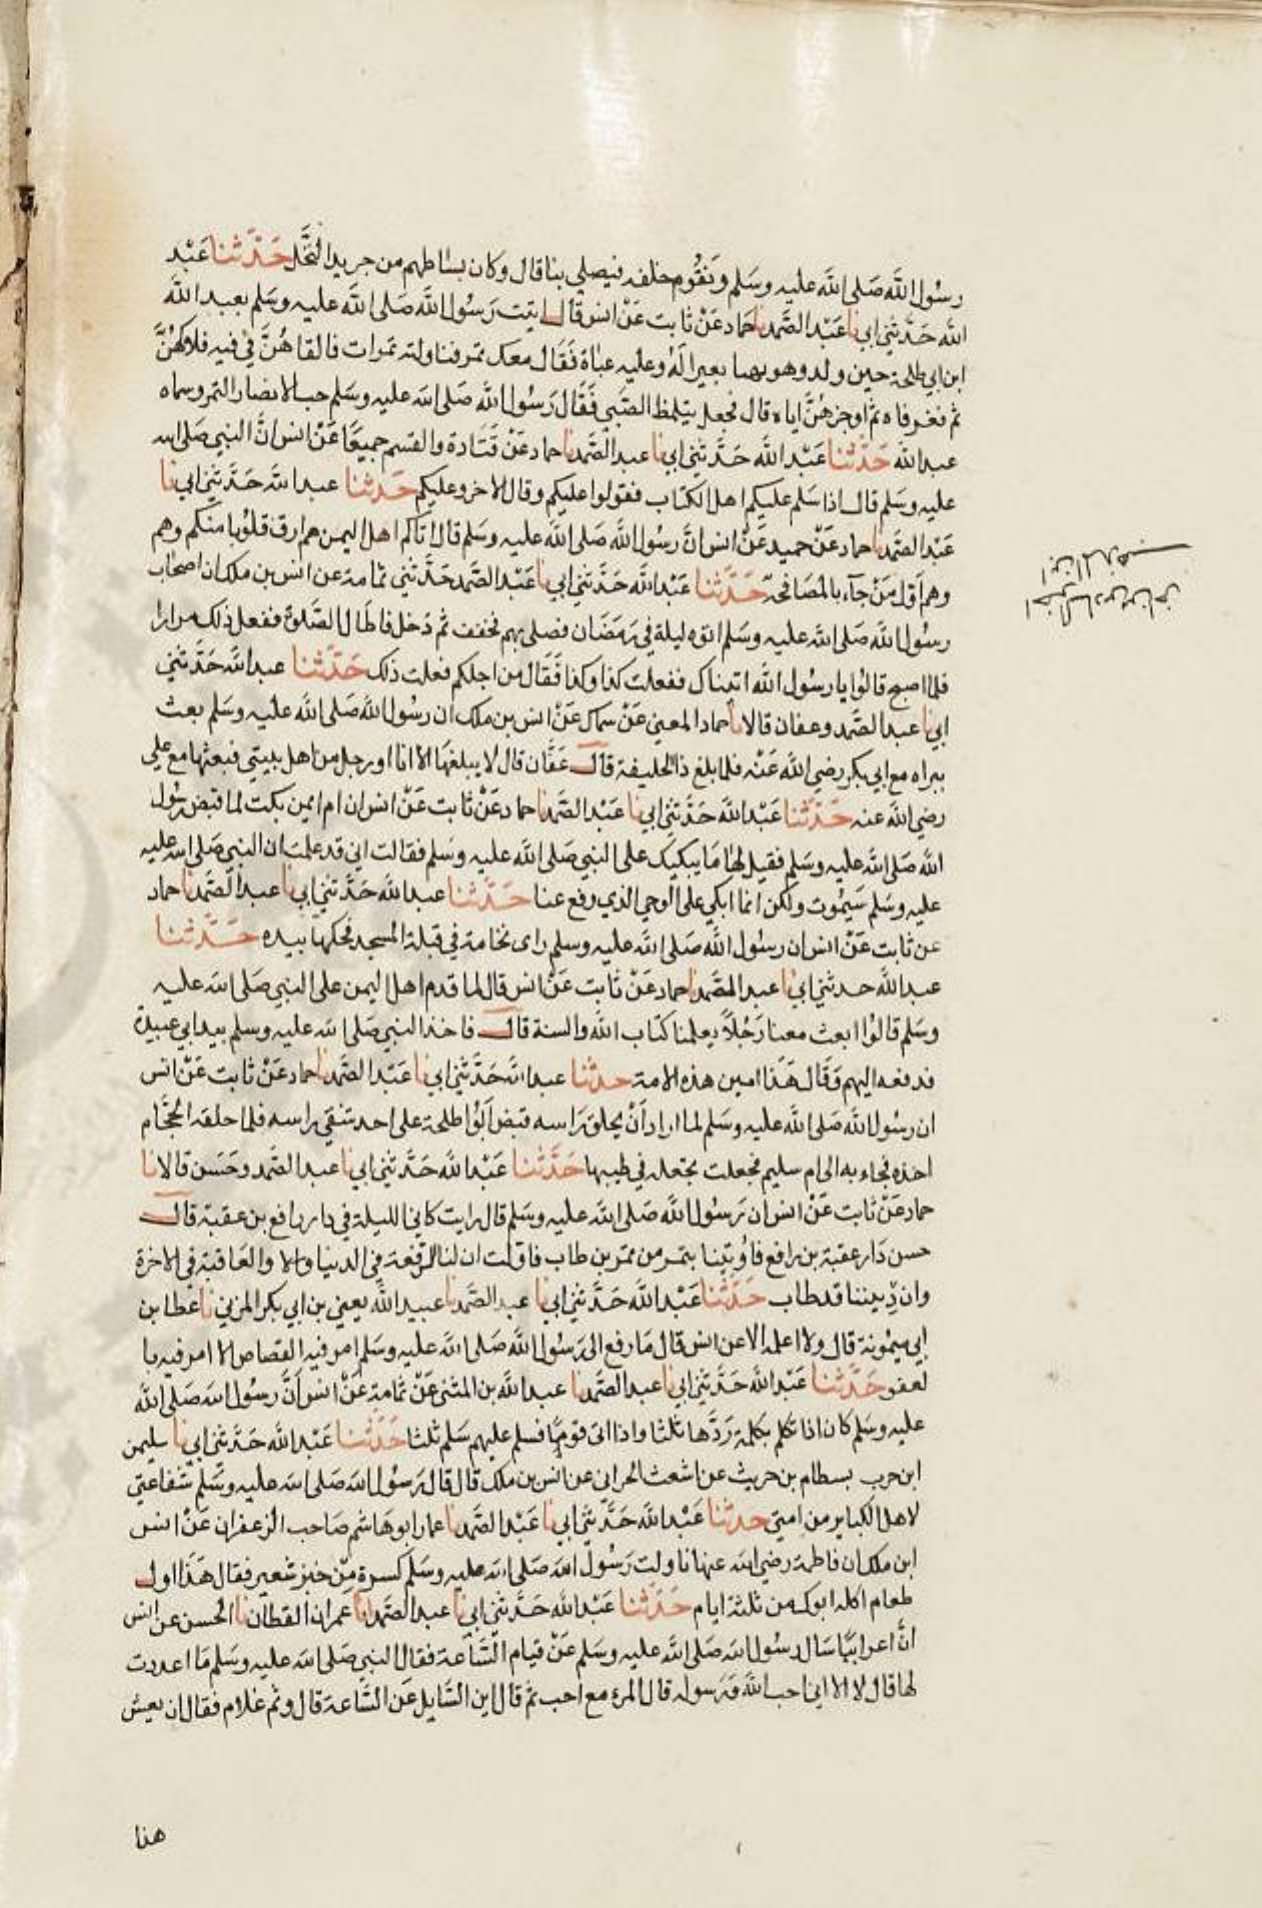 رسول الله صلى الله عليه وسلم ونقوم خلفه فيصلي بنا قال وكان بساطهم من جريد النخل حدثنا عبد
الله حدثني ابي نا عبد الصمد نا حماد عن ثابت عن انس قال اتيت رسول الله صلى الله عليه وسلم بعبد الله
ابن ابي طلحة حين ولد وهو يهنا بعيرا له وعليه عباة فقال معك تمر فناولته تمرات فالقاهن في فيه فلاكهن
ثم فغر فاه ثم اوجرهن اياه قال فجعل يتلمظ الصبي فقال رسول الله صلى الله عليه وسلم حب الانصار التمر وسماه
عبد الله حدثنا عبد الله حدثني ابي نا عبد الصمد نا حماد عن قتادة والقسم جميعا عن انس ان النبي صلى الله
عليه وسلم قال اذا سلم عليكم اهل الكتاب فقولوا عليكم وقال الاخر وعليكم حدثنا عبد الله حدثني ابي نا
عبد الصمد نا حماد عن حميد عن انس ان رسول الله صلى الله عليه وسلم قال اتاكم اهل اليمن هم ارق قلوبا منكم وهم
وهم اول من جاء بالمصافحة حدثنا عبد الله حدثني ابي نا عبد الصمد حدثني ثمامة عن انس بن ملك ان اصحاب
رسول الله صلى الله عليه وسلم اتوه ليلة في رمضان فصلى بهم فخفف ثم دخل فاطال الصلوة ففعل ذلك مرارا
فلما اصبح قالوا يا رسول الله اتيناك ففعلت كذا وكذا فقال من اجلكم فعلت ذلك حدثنا عبد الله حدثني
ابي نا عبد الصمد وعفان قالا نا حماد المعني عن سماك عن انس بن ملك ان رسول الله صلى الله عليه وسلم بعث
ببراه مع ابي بكر رضي الله عنه فلما بلغ ذا الحليفة قال عفان قال لا يبلغها الا انا او رجل من اهل بيتي فبعث بها مع علي
رضي الله عنه حدثنا عبد الله حدثني ابي نا عبد الصمد نا حماد عن ثابت عن انس ان ام ايمن بكت لما قبض رسول
الله صلى الله عليه وسلم فقيل لها ما يبكيك على النبي صلى الله عليه وسلم فقالت اني قد علمت ان النبي صلى الله عليه
عليه وسلم سيموت ولكن انما ابكي على الوحي الذي رفع عنا حدثنا عبد الله حدثني ابي نا عبد الصمد نا حماد
عن ثابت عن انس ان رسول الله صلى الله عليه وسلم راى نخامة في قبلة المسجد فحكها بيده حدثنا
عبد الله حدثني ابي نا عبد الصمد نا حماد عن ثابت عن انس قال لما قدم اهل اليمن على النبي صلى الله عليه
وسلم قالوا ابعث معنا رجلا يعلمنا كتاب الله والسنة قال فاخذ النبي صلى الله عليه وسلم بيد ابي عبيدة
فدفعه اليهم وقال هذا امين هذه الامة حدثنا عبد الله حدثني ابي نا عبد الصمد نا حماد عن ثابت عن انس
ان رسول الله صلى الله عليه وسلم لما اراد ان يحلق راسه قبض ابو طلحة على احد شقي راسه فلما حلقه الحجام
اخذه فجاء به الى ام سليم فجعلت تجعله في طيبها حدثنا عبد الله حدثني ابي نا عبد الصمد وحسن قالا نا
حماد عن ثابت عن انس ان رسول الله صلى الله عليه وسلم قال رايت كاني الليلة في دار رافع بن عقبة قال
حسن دار عقبة بن رافع فاوتينا بتمر من تمر بن طاب فاولت ان لنا الرفعة في الدنيا والعاقبة في الاخرة
وان ديننا قد طاب حدثنا عبد الله حدثني ابي نا عبد الصمد نا عبيد الله يعني بن ابي بكر المزني نا عطا بن
ابي ميمونة قال ولا اعلمه الا عن انس قال ما رفع الى رسول الله صلى الله عليه وسلم امر فيه القصاص الا امر فيه با
لعفو حدثنا عبد الله حدثني ابي نا عبد الصمد نا عبد الله بن المثنى عن ثمامة عن انس ان رسول الله صلى الله
عليه وسلم كان اذا تكلم بكلمة رددها ثلثا واذا اتى قوما فسلم عليهم سلم ثلثا حدثنا عبد الله حدثني ابي نا سليمن
ابن حرب بسطام بن حريث عن اشعث الحراني عن انس بن ملك قال قال رسول الله صلى الله عليه وسلم شفاعتي
لاهل الكباير من امتي حدثنا عبد الله حدثني ابي نا عبد الصمد نا عمار ابو هاشم صاحب الزعفران عن انس
ابن ملك ان فاطمة رضي الله عنها ناولت رسول الله صلى الله عليه وسلم كسرة من خبز شعير فقال هذا اول
طعام اكله ابوك من ثلثة ايام حدثنا عبد الله حدثني ابي نا عبد الصمد نا عمران القطان نا الحسن عن انس
ان اعرابيا سال رسول الله صلى الله عليه وسلم عن قيام الساعة فقال النبي صلى الله عليه وسلم ما اعددت
لها قال لا الا اني احب الله ورسوله قال المرء مع احب ثم قال اين السايل عن الساعة قال وثم غلام فقال ان يعيش
هنا